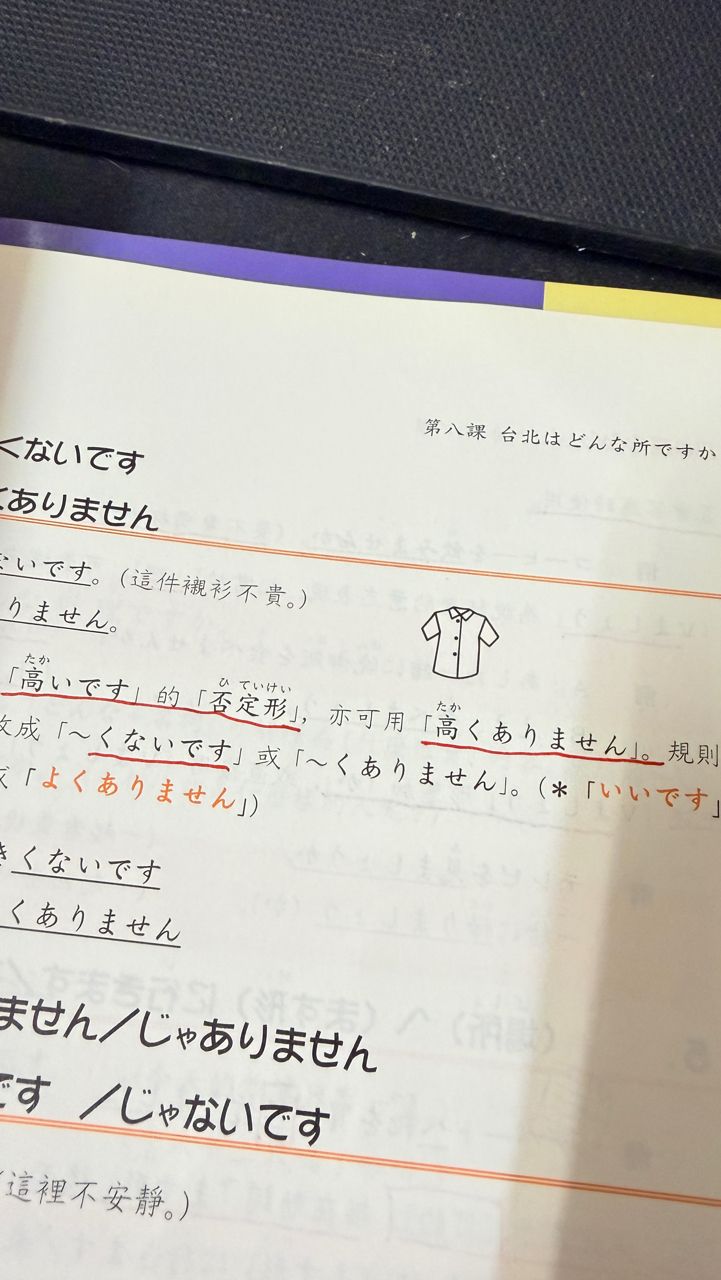 第八課 台北はどんな所ですか
くないです
くありません
ないです。(這件襯衫不貴。)
りません。
たか ひ ていけい たか
「高いです」的「否定形」，亦可用「高くありません」。規則
改成「～くないです」或「～くありません」。(＊「いいです」
「よくありません」)
くないです
くありません
ません／じゃありません
です ／じゃないです
(這裡不安靜。)